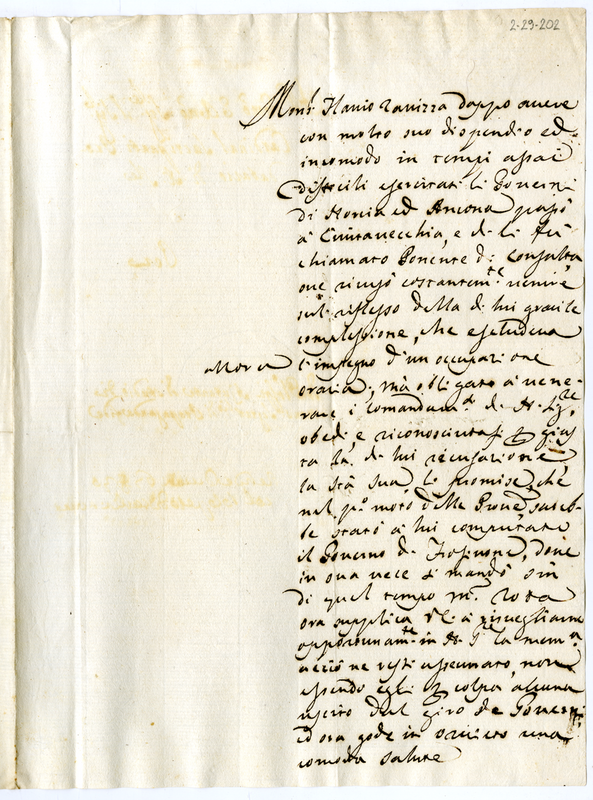 2-29-202
Mons.r Flavio Ravizza doppo avere
con molto suo dispendio ed
incomodo in tempi assai
difficili esercitati li Governi
di Norcia ed Ancona passò
à Civitavecchia, e di lì fù
chiamato Ponente di Consulta,
ove ricusò costantem.te venire
sul riflesso della di lui gracile
complessione, che escludeva
allora l'impegno d'un occupazione
oraria; mà obligato à vene-
rare i comandam.ti di N. Sig.re
obedì, e riconosciutasi p giu
sta la di lui ricusazione
la Stà Sua, lo promise, chè
nel p.o moto delle Prove sareb-
be stato à lui compartito
il Governo di Frosinone, dove
in sua vece si mandò sin
di quel tempo m.r Rota
ora supplica V.E. à risvegliarne
opportunam.te in N. S.re la mem.a
acciò ne resti assumato, non
essendo egli p colpa alcuna
uscito dal giro de Governi,
ed ora gode in Orvieto una
comoda salute